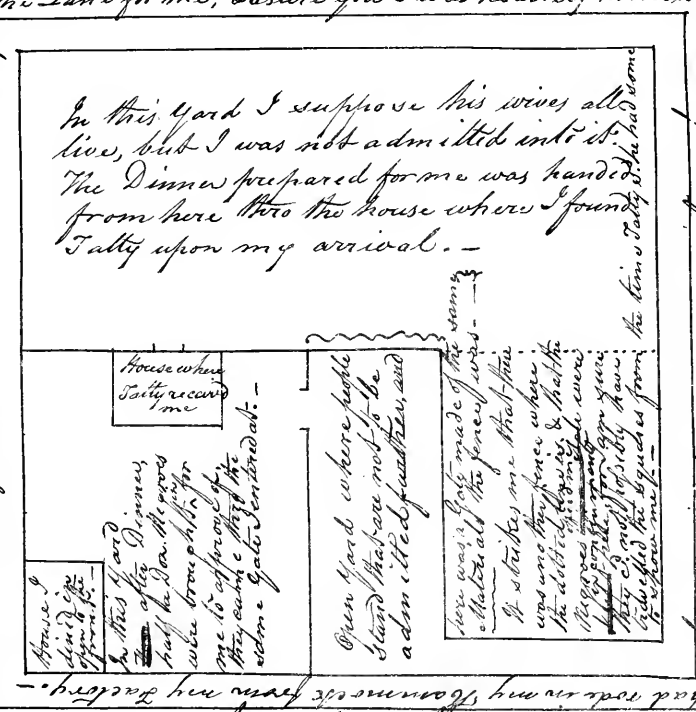 In this Yard I suppose his wives all
live, but I was not admitted into it.
The Dinner prepared for me was handed
from here thro the house where I found
Tatty upon my arrival. —
House where
Tatty received
me
House I
dined in
open to the
front. —
In this Yard
after Dinner,
half a Doz. Negroes
were brought in for
me to approve of,
they came thro the
same Gate I entered at. —
Open Yard where people
stand that are not to be
admitted further, and
here was a Gate made of the same
Materials the fence was. —
It strikes me that there
was another fence where
the dotted line is, & that the
Negroes were
for I am sure
they cd. not possibly have
the Squares from the time Tatty sd. he had some
to show me. —
had rode in my Hammock from my Factory. —